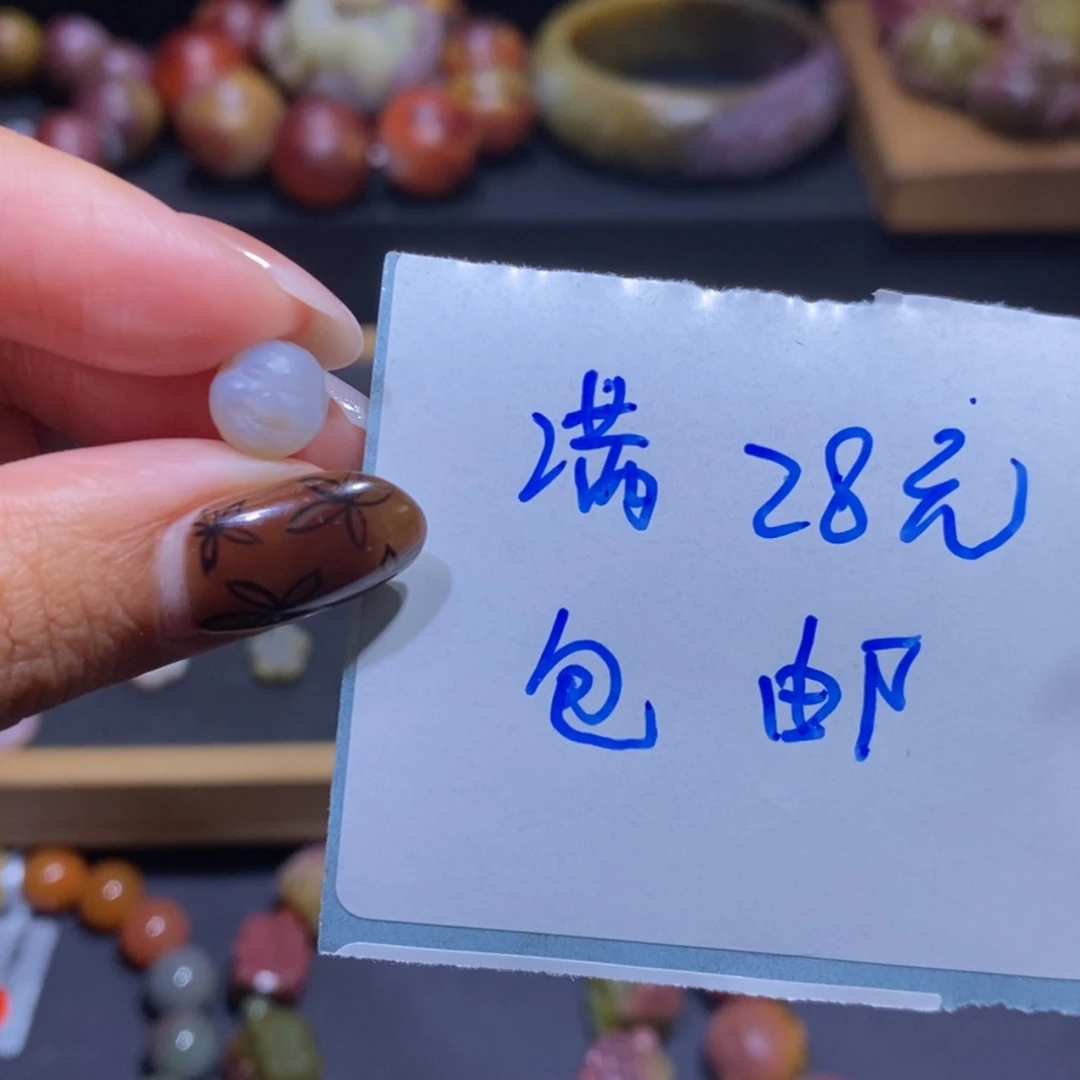 满28元
包邮